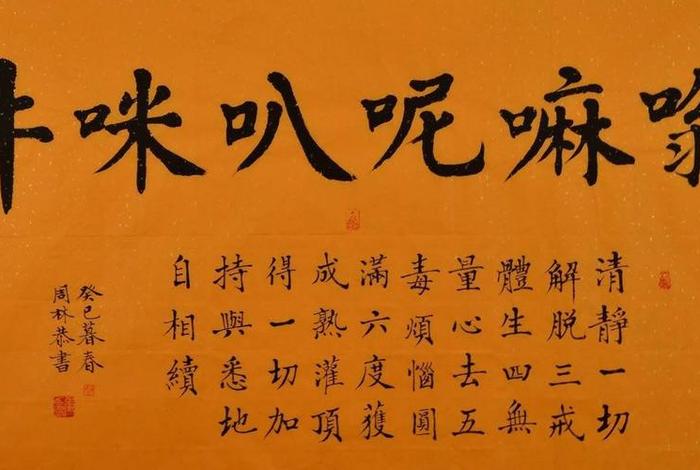 嗡嘛呢叭咪
清靜一切
解脫三戒
體生四無
量心去五
毒煩惱圓
滿六度獲
成熟灌頂
得一切加
持與悉地
自相續
癸巳暮春
周林恭書